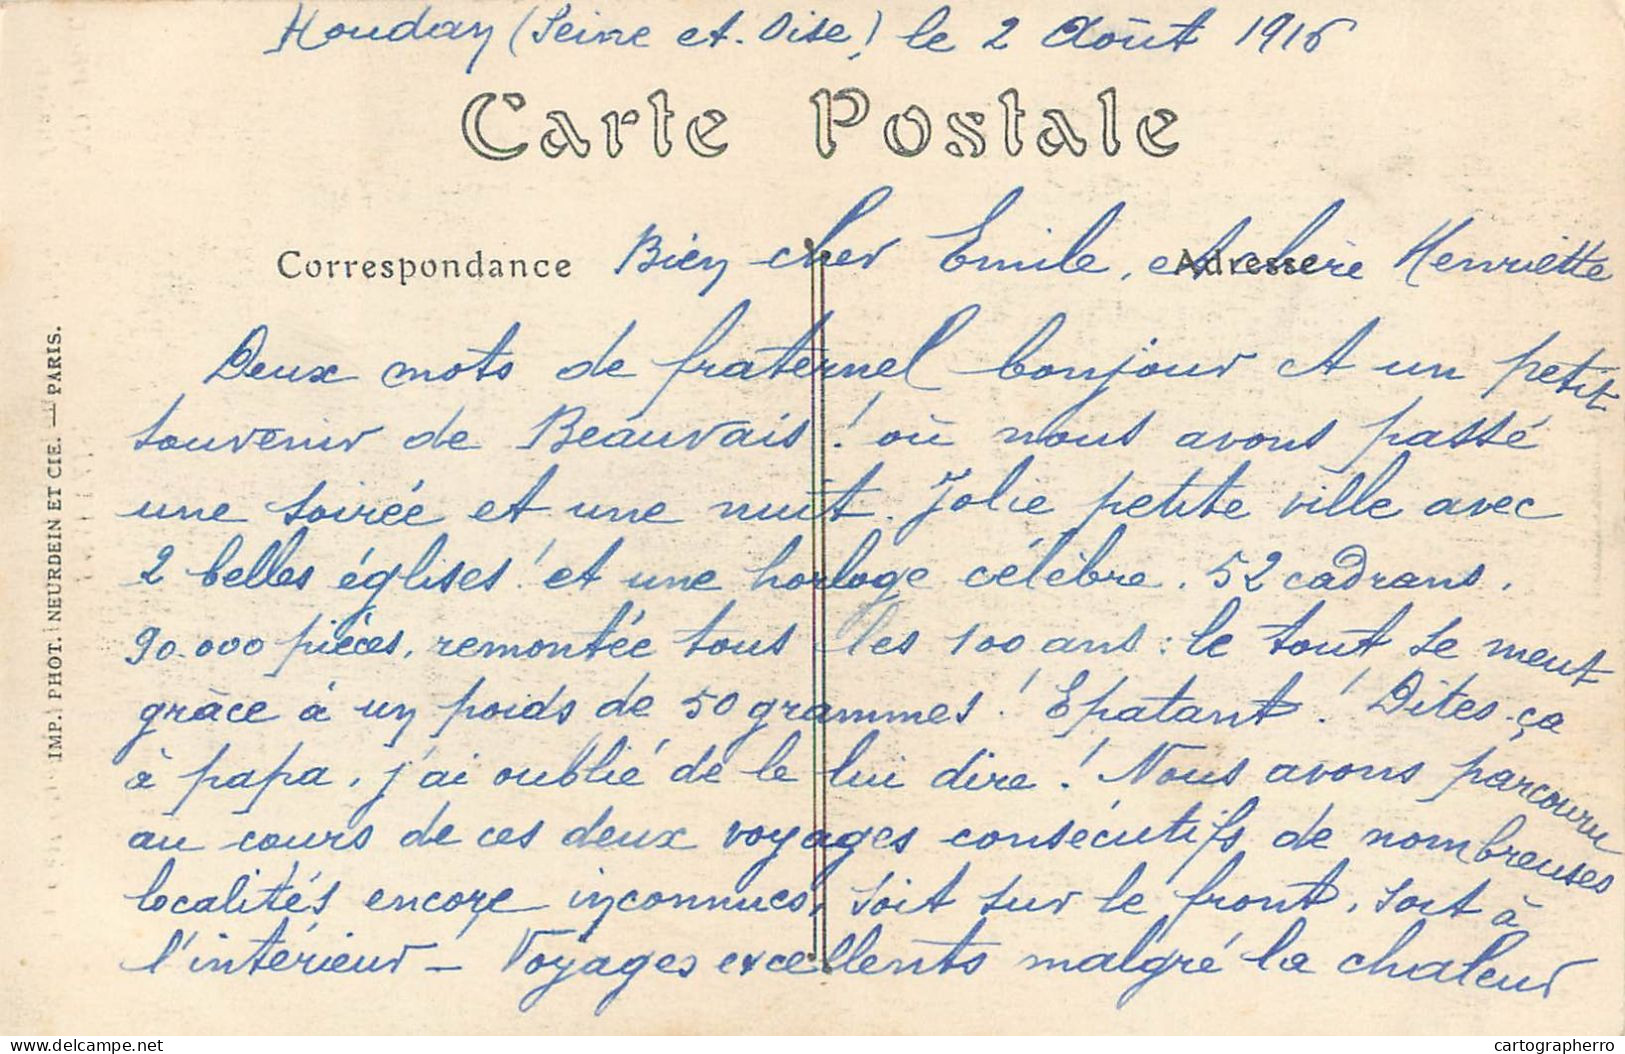 Houdan (Seine et Oise) le 2 Août 1916
Carte Postale
Correspondance
Adresse
Bien cher Emile, et chère Henriette
Deux mots de fraternel bonjour et un petit
souvenir de Beauvais ! où nous avons passé
une soirée et une nuit. Jolie petite ville avec
2 belles églises ! et une horloge célèbre. 52 cadrans.
90.000 pièces, remontée tous les 100 ans : le tout se meut
grâce à un poids de 50 grammes ! Epatant ! Dites-ça
à papa, j'ai oublié de le lui dire ! Nous avons parcouru
au cours de ces deux voyages consécutifs de nombreuses
localités encore inconnues, soit sur le front, soit à
l'intérieur – Voyages excellents malgré la chaleur
IMP. PHOT. NEURDEIN ET CIE. — PARIS.
delcampe.net
cartographerro